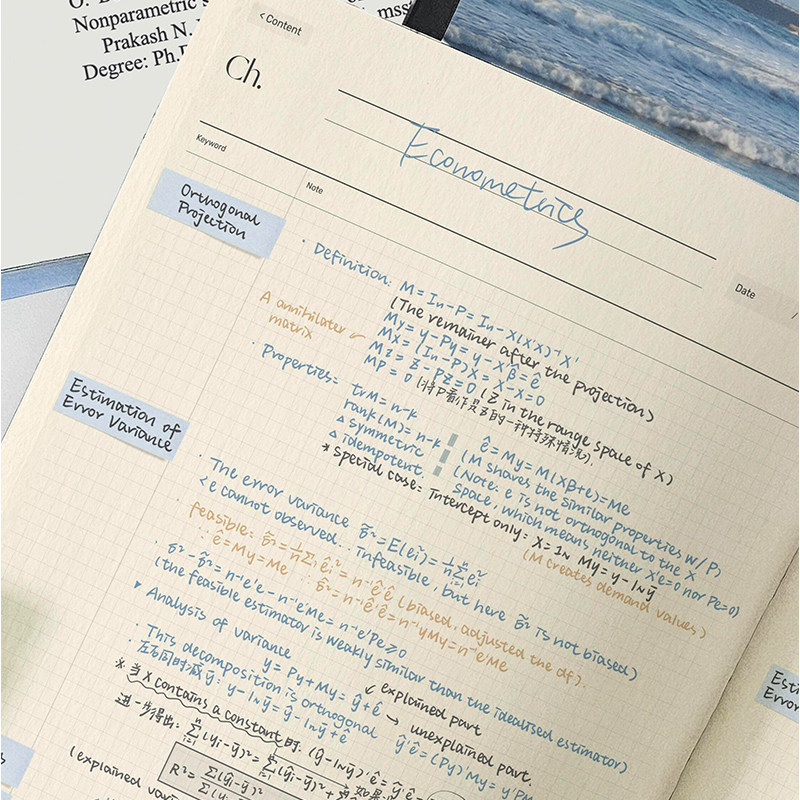 Nonparametric
Prakash N.
Degree: Ph.D
< Content
Ch.
Econometrics
Keyword
Note
Date
Orthogonal
Projection
· Definition: M = In - P = In - X(X'X)⁻¹X'
(The remainer after the projection)
A annihilater
matrix
My = y - Py = y - Xβ̂ = ê
MX = (In-P)X = X-X=0
MZ = Z - PZ = 0 (Z in the range space of X)
MP = 0 (将P看作是Z的一种特殊情况).
· Properties: trM = n-k
rank(M) = n-k
△ symmetric
△ idempotent.
ê = My = M(Xβ+e) = Me
(M shares the similar properties w/ P)
(Note: e is not orthogonal to the X
space, which means neither X'e=0 nor Pe=0)
* special case: intercept only: X = 1n My = y - 1nȳ
(M creates demand values)
Estimation of
Error Variance
· The error variance σ̃² = E(ei²) = 1/n Σ ei²
< e cannot observed.. infeasible, but here σ̃² is not biased)
· feasible: σ̂² = 1/n Σ êi² = n⁻¹ê'ê (biased, adjusted the df).
∵ ê = My = Me ∴ σ̂² = n⁻¹ê'ê = n⁻¹yMy = n⁻¹e'Me
· σ̃² - σ̂² = n⁻¹e'e - n⁻¹e'Me = n⁻¹e'Pe ≥ 0
(the feasible estimator is weakly similar than the idealised estimator)
▸ Analysis of variance
y = Py + My = ŷ + ê
explained part
→ unexplained part
· This decomposition is orthogonal ŷ'ê = (Py)'My = y'PM
· 左右同时减ȳ: y - 1nȳ = ŷ - 1nȳ + ê
* 当X contains a constant时: (ŷ - 1nȳ)'ê = ŷ'ê -
进一步得出: Σ(yi - ȳ)² = Σ(ŷi - ȳ)² +
R² = Σ(ŷi - ȳ)²
(explained
Error